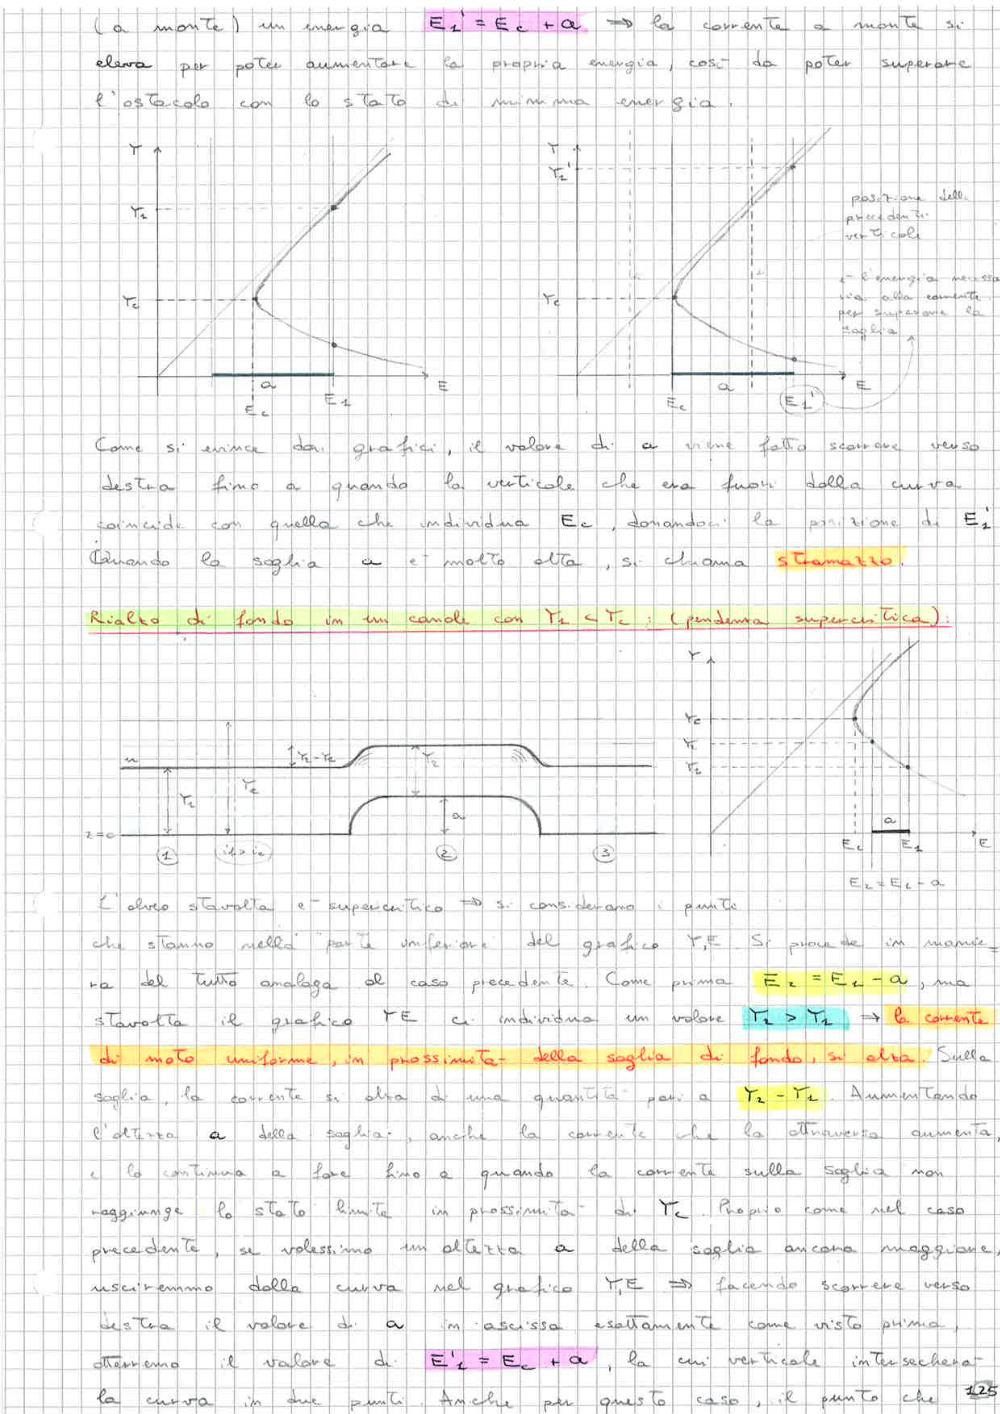 (a monte) un energia E1' = Ec + a ⇒ la corrente a monte si
eleva per poter aumentare la propria energia, così da poter superare
l'ostacolo con lo stato di minima energia.
Y
Y1
Yc
a
Ec
E1
E
Y
Y1'
Yc
a
Ec
E1'
E
posizione delle
precedenti
verticali
è l'energia necessa
ria alla corrente
per superare la
soglia
Come si evince dai grafici, il valore di a viene fatto scorrere verso
destra fino a quando la verticale che era fuori dalla curva
coincide con quella che individua Ec, donandoci la posizione di E1'
Quando la soglia a è molto alta, si chiama stramazzo.
Rialzo di fondo in un canale con Y1 < Yc : (pendenza supercritica):
Y2-Y1
Y1
Yc
Y2
a
z=0
1
i1 > ic
2
3
Y
Yc
Y2
Y1
a
Ec
E1
E
L'alveo stavolta è supercritico ⇒ si considerano i punti
che stanno nella parte inferiore del grafico Y,E. Si procede in manie=
ra del tutto analoga al caso precedente. Come prima E2 = E1 - a, ma
stavolta il grafico YE ci individua un valore Y2 > Y1 ⇒ la corrente
di moto uniforme, in prossimità della soglia di fondo, si alza. Sulla
soglia, la corrente si alza di una quantità pari a Y2 - Y1. Aumentando
l'altezza a della soglia, anche la corrente che la attraversa aumenta,
e lo continua a fare fino a quando la corrente sulla soglia non
raggiunge lo stato limite in prossimità di Yc. Proprio come nel caso
precedente, se volessimo un altezza a della soglia ancora maggiore,
usciremmo dalla curva nel grafico Y,E ⇒ facendo scorrere verso
destra il valore di a in ascissa esattamente come visto prima,
otterremo il valore di E'1 = Ec + a, la cui verticale intersecherà
la curva in due punti. Anche per questo caso, il punto che
125